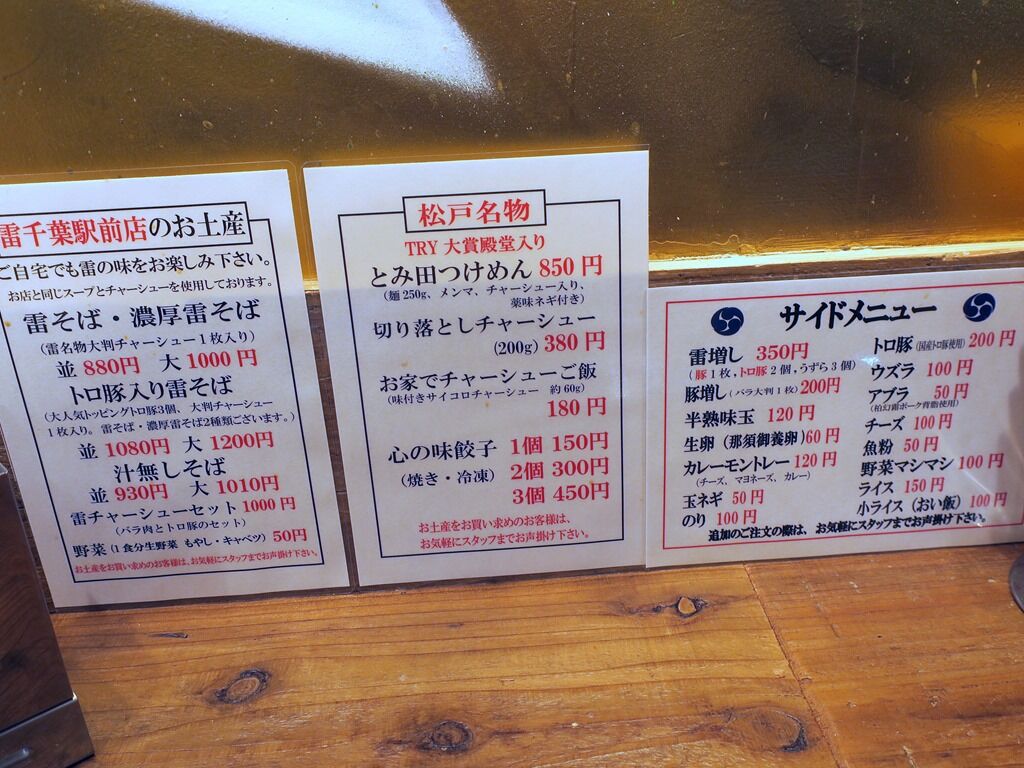 雷千葉駅前店のお土産
ご自宅でも雷の味をお楽しみ下さい。
お店と同じスープとチャーシューを使用しております。
雷そば・濃厚雷そば
(雷名物大判チャーシュー1枚入り)
並 880円 大 1000円
トロ豚入り雷そば
(大人気トッピングトロ豚3個、大判チャーシュー
1枚入り。雷そば・濃厚雷そば2種類ございます。)
並 1080円 大 1200円
汁無しそば
並 930円 大 1010円
雷チャーシューセット 1000円
(バラ肉とトロ豚のセット)
野菜(1食分生野菜 もやし・キャベツ) 50円
お土産をお買い求めのお客様は、お気軽にスタッフまでお声掛け下さい。
松戸名物
TRY 大賞殿堂入り
とみ田つけめん 850円
(麺250g、メンマ、チャーシュー入り、
薬味ネギ付き)
切り落としチャーシュー
(200g) 380円
お家でチャーシューご飯
(味付きサイコロチャーシュー 約60g)
180円
心の味餃子 1個 150円
(焼き・冷凍) 2個 300円
3個 450円
お土産をお買い求めのお客様は、
お気軽にスタッフまでお声掛け下さい。
サイドメニュー
雷増し 350円
(豚1枚,トロ豚2個,うずら3個)
豚増し(バラ大判1枚)200円
半熟味玉 120円
生卵(那須御養卵)60円
カレーモントレー 120円
(チーズ、マヨネーズ、カレー)
玉ネギ 50円
のり 100円
トロ豚(国産トロ豚使用)200円
ウズラ 100円
アブラ 50円
(柏幻霜ポーク背脂使用)
チーズ 100円
魚粉 50円
野菜マシマシ 100円
ライス 150円
小ライス(おい飯)100円
追加のご注文の際は、お気軽にスタッフまでお声掛け下さい。